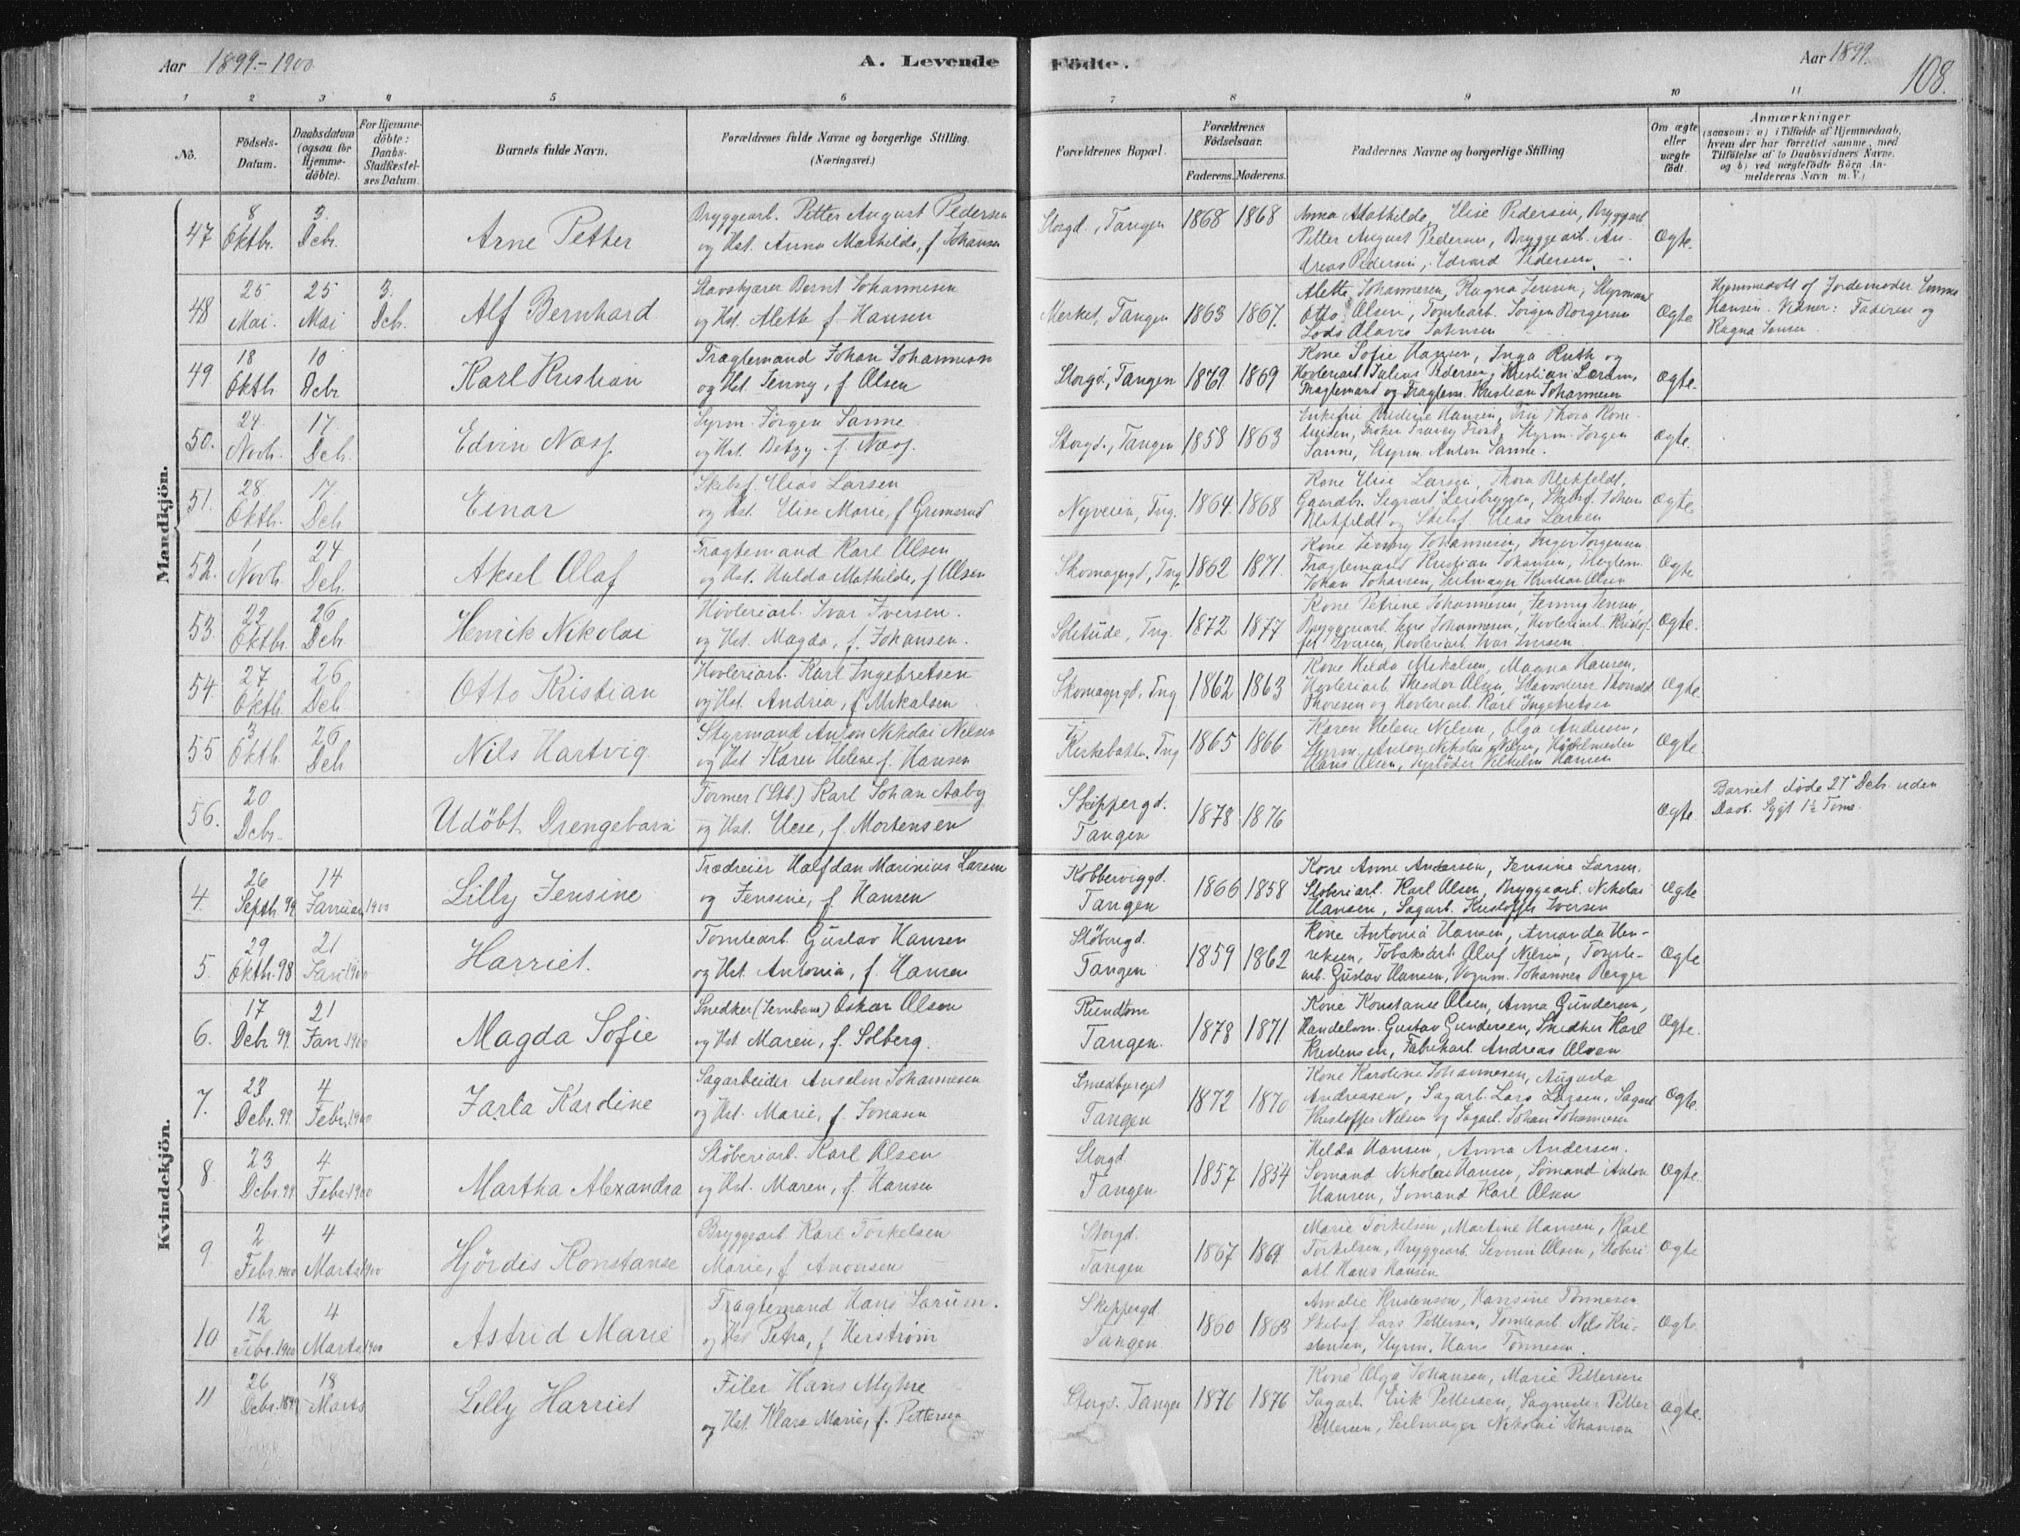 Aar 1899.-1900
A. Levende
Födte.
Aar 1899.
108.
1 2 3 4 5 6 7 8 9 10 11
No.
Födsels-Datum.
Daabsdatum (ogsaa for Hjemme-döbte).
For Hjemme-döbte: Daabs-Stadfæstel-ses Datum.
Barnets fulde Navn.
Forældrenes fulde Navne og borgerlige Stilling.
(Næringsvei.)
Forældrenes Bopæl.
Forældrenes Födselsaar.
Faderens. Moderens.
Faddernes Navne og borgerlige Stilling
Om ægte eller uægte födt.
Anmærkninger
(saasom: a) i Tilfælde af Hjemmedaab,
hvem der har forrettet samme, med
Tilföielse af to Daabsvidners Navne,
og b) ved uægtefödte Börn An-
melderens Navn m. V.)
Mandkjön.
47 8 Oktbr. 3. Dcbr. Arne Petter
Bryggearb. Petter August Pedersen
og Hst. Anna Mathilde, f. Johansen
Storgd., Tangen 1868 1868
Anna Mathilde, Elise Pedersen, Bryggearb.
Petter August Pedersen, Bryggearb. An-
dreas Pedersen, Edvard Pedersen
Ægte.
48 25 Mai. 25 Mai 3. Dcb. Alf Bernhard
Stavskjærer Bernt Johannesen
og Hst. Alette f. Hansen
Merket, Tangen 1863 1867.
Alette Johannesen, Ragna Jensen, Styrmand
Otto Olsen, Tomtearb. Jörgen Borgersen
Lods Olavis Johnsen
Ægte
Hjemmedöbt af Jordemoder Emma
Hansen. Vidner: Faderen og
Ragna Jensen.
49. 18 Oktb. 10 Dcbr Karl Kristian
Fragtemand Johan Johannesen
og Hst. Jenny, f. Olsen
Storgd., Tangen 1869 1869
Kone Sofie Hansen, Inga Ruth og
Hovleriarb. Julius Pedersen, Kristian Larsen,
Fragtemand og Fragtem. Kristian Johannesen
Ægte.
50. 24. Novb. 17. Dcb. Edvin Næss.
Styrm. Jörgen Sanne
og Hst. Betzy f. Næss.
Storgd., Tangen 1858 1863
Sanne, Styrm. Anton Sanne.
Ægte.
51. 28. Oktb. 17 Dcb Einar
Skibsf. Elias Larsen
og Hst. Elise Marie, f Grimsrud
Nyveien, Tng. 1864. 1868
Kone Elise Larsen, Thora Blikfeldt,
Gaardbr. Segvart Leirbryggen, Skibsf. Johan
Blikfeldt og Skibsf. Elias Larsen
Ægte
52. 1 Novb. 24 Dcb. Aksel Olaf
Fragtemand Karl Olsen
og Hst. Hulda Mathilde, f Olsen
Skomagergd., Tng 1862 1871.
Kone Jenny Johannesen, Inger Jörgensen
Fragtemand Kristian Johansen, Fragtem.
Johan Johansen, Seilmager Kristian Olsen
Ægte
53. 22 Oktbr. 26 Dcb. Henrik Nikolai
Hövleriarb. Ivar Iversen.
og Hst. Magda, f. Johansen.
Solitüde, Tng. 1872 1877
Kone Petrine Johannesen, Jenny Jensen,
Bryggeriarb. Lars Johannesen, Hovleriarb. Kristof-
fer Iversen, Hövleriarb. Ivar Iversen
Ægte.
54. 27 Oktb. 26 Dcb Otto Kristian
Hovleriarb. Karl Ingebretsen
og Hst. Andrea, f. Mikalsen
Skomagergd, Tng 1862 1863
Kone Hilda Mikalsen, Magna Hansen,
Hovleriarb. Theodor Olsen, Thorvald
Thoresen og Hovleriarb. Karl Ingebretsen
Ægte
55 3 Oktb. 26 Dcb Nils Hartvig.
Styrmand Anton Nikolai Nilsen
og Hst Karen Helene f. Hansen
Kirkebakken. Tng 1865 1866
Karen Helene Nilsen, Olga Andersen,
Styrm. Anton Nikolai Nilsen,
Hans Olsen, Vilhelm Hansen
Ægte
56. 20 Dcbr. Udöbt Drengebarn
Former (Stb.) Karl Johan Aaby
og Hst. Elise, f. Mortensen
Skippergd. Tangen 1878 1876
Ægte
Barnet döde 21 Dcbr. uden
Daab. 1½ Time
Kvindekjön.
4. 26 Septb. 99 14 Januar 1900 Lilly Jensine
Trædreier Halfdan Marinius Larsen
og Jensine, f. Hansen
Kobberviggd. Tangen 1866 1858
Kone Anne Andersen, Jensine Larsen,
Stoberiarb. Karl Olsen, Bryggearb. Nikolai
Hansen, Sagarb. Kristoffer Iversen
Ægte
5. 29 Oktb. 98 21 Jan. 1900 Harriet.
Tomtearb. Gustav Hansen
og Hst. Antonia, f. Hansen
Stöberigd. Tangen 1859 1862
Kone Antonia Hansen, Amanda Hen-
reksen, Tobaksarb. Oluf Nilsen, Tomte-
arb. Gustav Hansen, Vognm. Johannes Berger
Ægte
6. 17 Dcbr 99. 21 Jan 1900 Magda Sofie
Snedker (Jernbane) Oskar Olsen
og Hst. Maren, f. Solberg.
Rundtom Tangen. 1878 1871
Kone Konstanse Olsen, Anna Gundersen,
Handelsm. Gustav Gundersen, Snedker Karl
Kristensen, Fabrikarb. Andreas Olsen
Ægte.
7. 23 Dcbr. 99. 4 Febr. 1900 Jarla Karoline
Sagarbeider Anselm Johannesen
og Hst. Marie, f. Jonasen
Smedbjerget Tangen 1872 1870
Kone Karoline Johannesen, Augusta
Andreasen, Sagarb. Lars Larsen, Sagarb
Kristoffer Nilsen og Sagarb. Johan Johannesen
Ægte.
8. 23 Dcbr. 99 4 Febr. 1900 Martha Alexandra
Stöberiarb. Karl Olsen
og Hst. Maren, f. Hansen
Storgd. Tangen 1857 1854
Helda Hansen, Anna Andersen.
Sömand Nikolai Hansen, Sömand Anton
Hansen, Sömand Karl Olsen
Ægte.
9. 2 Febr. 1900 4 Marts 1900 Hjördis Konstanse
Bryggearb. Karl Torkelsen
Marie, f. Anonsen
Storgd. Tangen 1867 1864
Marie Torkelsen, Martine Hansen, Karl
Torkelsen, Bryggearb. Severin Olsen, Stoberi
arb. Hans Hansen
Ægte
10 12 Febr. 1900 4 Marts 1900 Astrid Marie
Fragtemand Hans Larum.
og Hst Petra, f Herström
Skippergd. Tangen 1860 1863
Amalie Kristensen, Hansine Tönnesen
Skibsf. Lars Pettersen, Tomtearb. Nils Kri-
stensen, Styrm. Hans Tönnesen.
Ægte.
11 26 Dcbr. 1899 18 Marts Lilly Harriet
Filer Hans Myhre
og Hst. Klara Marie, f. Pettersen
Storgd. Tangen 1876 1876
Kone Olga Johansen, Marie Pettersen
Sagarb. Erik Pettersen, Petter
Pettersen, Seilmager Nikolai Johansen
Ægte.